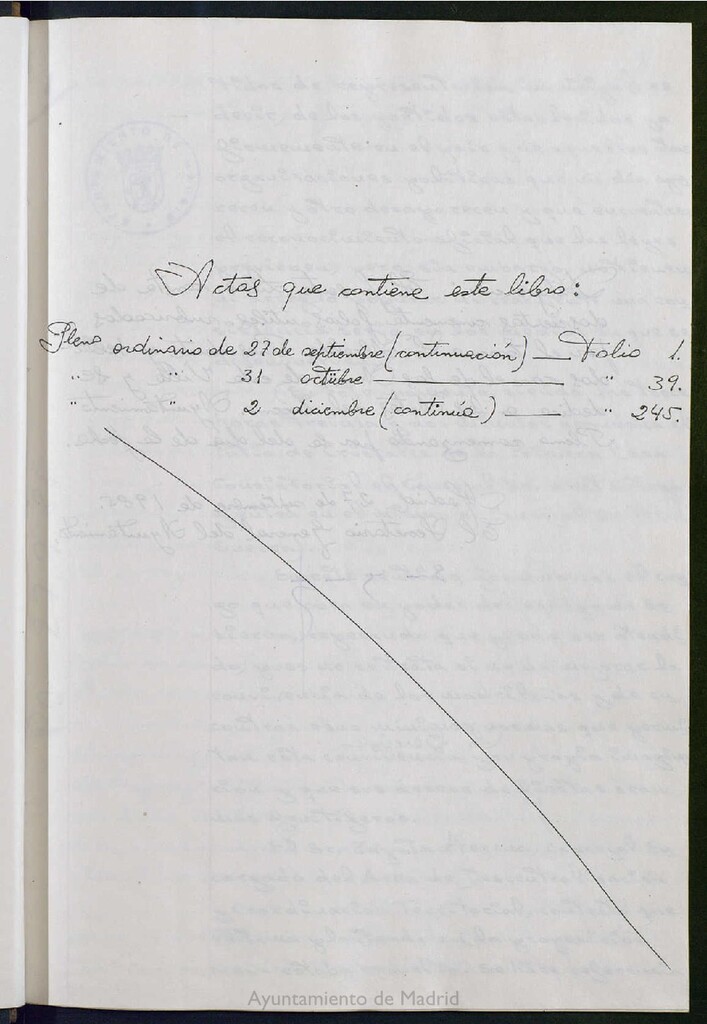 Actas que contiene este libro:
Pleno ordinario de 27 de septiembre (continuación) — Folio 1.
" " 31 octubre — " 39.
" " 2 diciembre (continúa) — " 245.
Ayuntamiento de Madrid